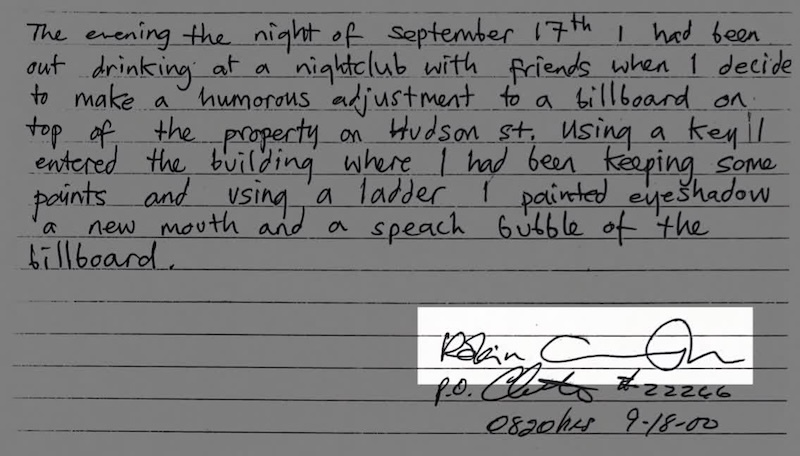 The evening the night of september 17th I had been
out drinking at a nightclub with friends when I decide
to make a humorous adjustment to a billboard on
top of the property on Hudson st. Using a key I
entered the building where I had been keeping some
paints and using a ladder I painted eyeshadow
a new mouth and a speach bubble of the
billboard.
Robin
P.O. #22246
0820hrs 9-18-00